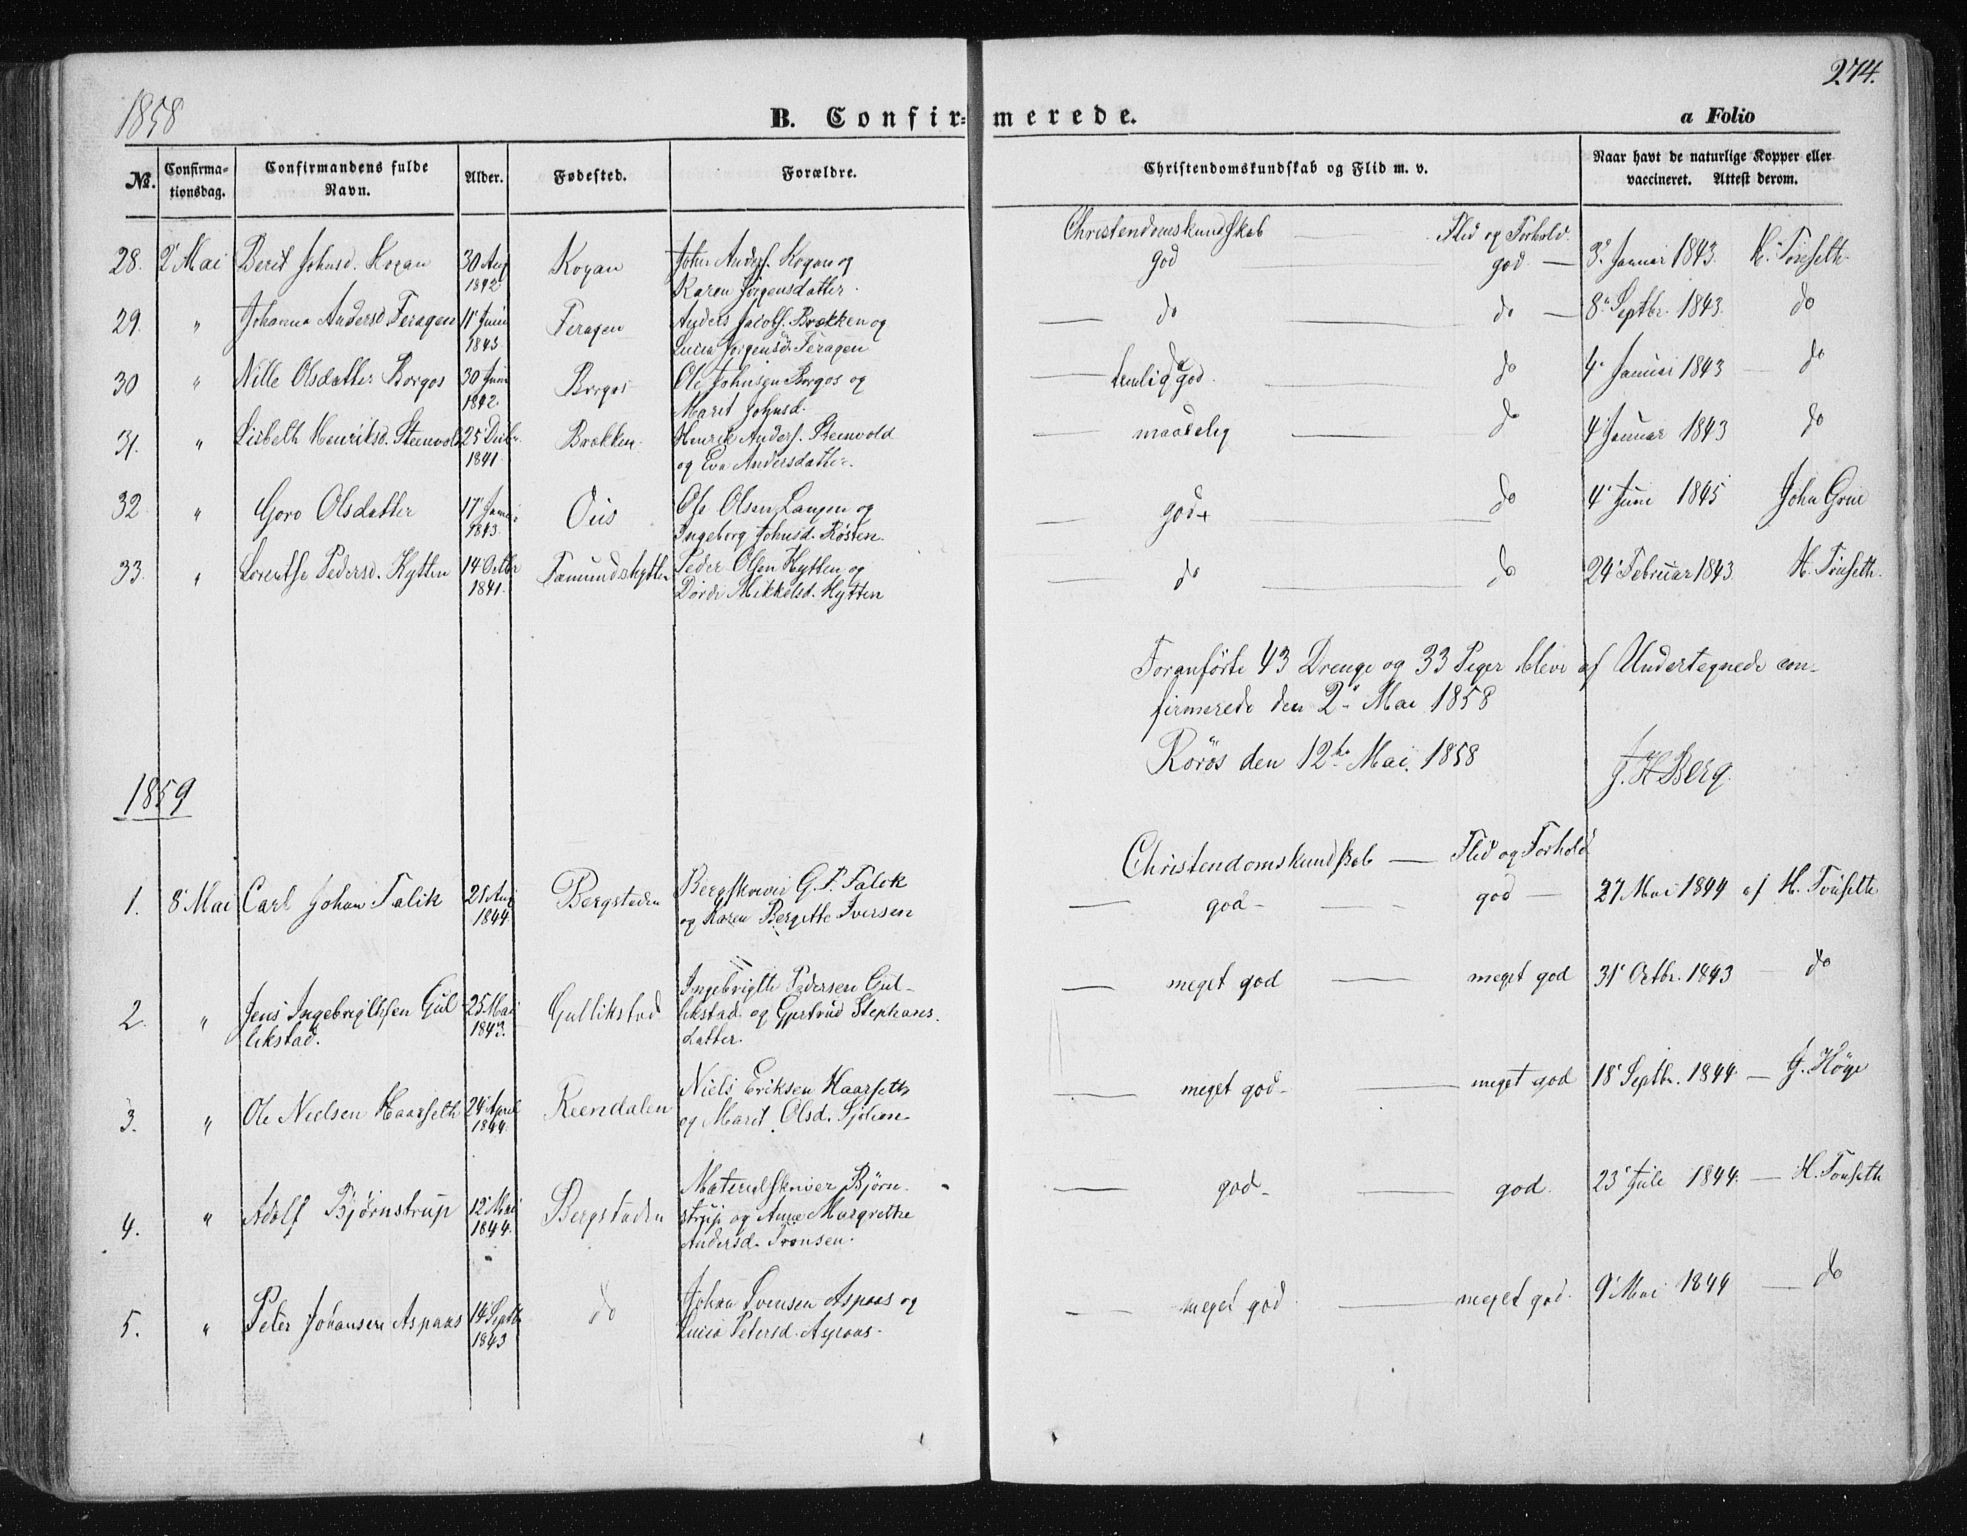 1858
274.
B. Confir=merede.
a Folio
No.
Confirma-tionsdag.
Confirmandens fulde Navn.
Alder.
Fødested.
Forældre.
Christendomskundskab og Flid m. v.
Naar havt de naturlige Kopper eller vaccineret. Attest derom.
Christendomskundskab — Flid og Forhold.
28. 2' Mai Berit Johnsd. Kojan 30 Aug Kojan John Anders. Kojan og god — god — 3' Januar 1843. H. Tønseth.
1842 Karen Jørgensdatter.
29. " Johanna Andersd Feragen 11' Juni Feragen Anders Jacobs. Brækken og — do — do — 8' Septbr. 1843. do
1843 Lucia Jørgensd. Feragen
30 " Nille Olsdatter Borgos 30 Juni Borgos Ole Johnsen Borgos og — temlig god. — do 4' Januar 1843 — do
1842. Marit Johnsd.
31. " Lisbeth Henriksd. Steenvold 25' Decbr. Brækken Henrik Anders. Steenvold — maadelig — do 4' Januar 1843 do
1841. og Eva Andersdatter.
32 " Goro Olsdatter 17' Januar Ous Ole Olsen Langen og — god+ — do 4' Juni 1845 John Grue
1843. Ingeborg Johnsd. Røsten.
33. " Lorentse Pedersd. Hytten 14 Octbr Fæmundshytten Peder Olsen Hytten og — do — do 24' Februar 1843. H. Tønseth.
1841. Dorde Mikkelsd. Hytten
Foranførte 43 Drenge og 33 Piger bleve af Undertegnede con-
firmerede den 2' Mai 1858
Rörös den 12te Mai. 1858 J. H Berg.
1859
Christendomskundskab — Flid og Forhold
1. 8' Mai Carl Johan Falik 21 Aug Bergstaden Bergskriver G. P. Falck — god — god — 27 Mai 1844 af H. Tønseth
1844 og Karen Bergitte Iversen
2. " Jens Ingebrigtsen Gul- 25 Mai Gullikstad Ingebrigt Pedersen Gul- — meget god — meget god 31' Octbr. 1843 — do
likstad. 1843. likstad og Gjertrud Stephans-
datter.
3. " Ole Nielsen Haarseth 24' April Reendalen Niels Eriksen Haarseth — meget god — meget god 18' Septbr. 1844 — J. Höye
1844. og Marit Olsd. Sjølien
4. " Adolf Bjørnstrup 12' Mai Bergstaden Materialskriver Bjørn- — god — god. 23' Juli 1844. — H. Tønseth
1844. strup og Anne Margrethe
Andersd. Tronsen.
5. " Peter Johansen Aspaas 14 Septbr do Johan Svensen Aspaas og — meget god — meget god. 9' Mai 1844 — do
1843 Lucia Petersd. Aspaas.